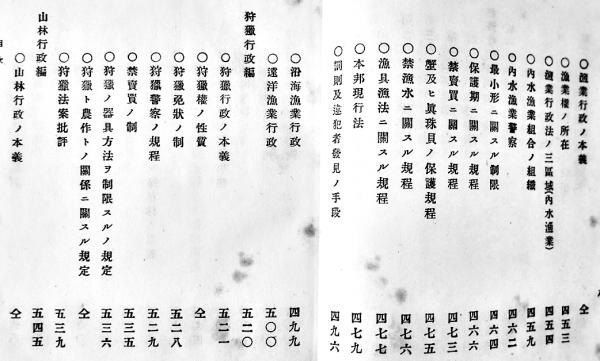 ○漁業行政ノ本義 仝
○漁業權ノ所在 四五三
○漁業行政法ノ三區域(內水漁業) 四五四
○內水漁業組合ノ組織 四五九
○內水漁業警察 四六二
○最小形ニ關スル制限 四六四
○保護期ニ關スル規程 四六六
○禁賣買ニ關スル規程 四七三
○蟹及ヒ眞珠貝ノ保護規程 四七五
○禁漁水ニ關スル規程 四七六
○漁具漁法ニ關スル規程 四七七
○本邦現行法 四七九
○罰則及違犯者發見ノ手段 四九六
○沿海漁業行政 四九九
○遠洋漁業行政 五〇〇
狩獵行政編 五二〇
○狩獵行政ノ本義 五二一
○狩獵權ノ性質 仝
○狩獵免狀ノ制 五二八
○狩獵警察ノ規程 五二九
○禁賣買ノ制 五三五
○狩獵ノ器具方法ヲ制限スルノ規定 五三六
○狩獵ト農作トノ關係ニ關スル規定 仝
○狩獵法案批評 五三九
山林行政編 五四五
○山林行政ノ本義 仝
目次